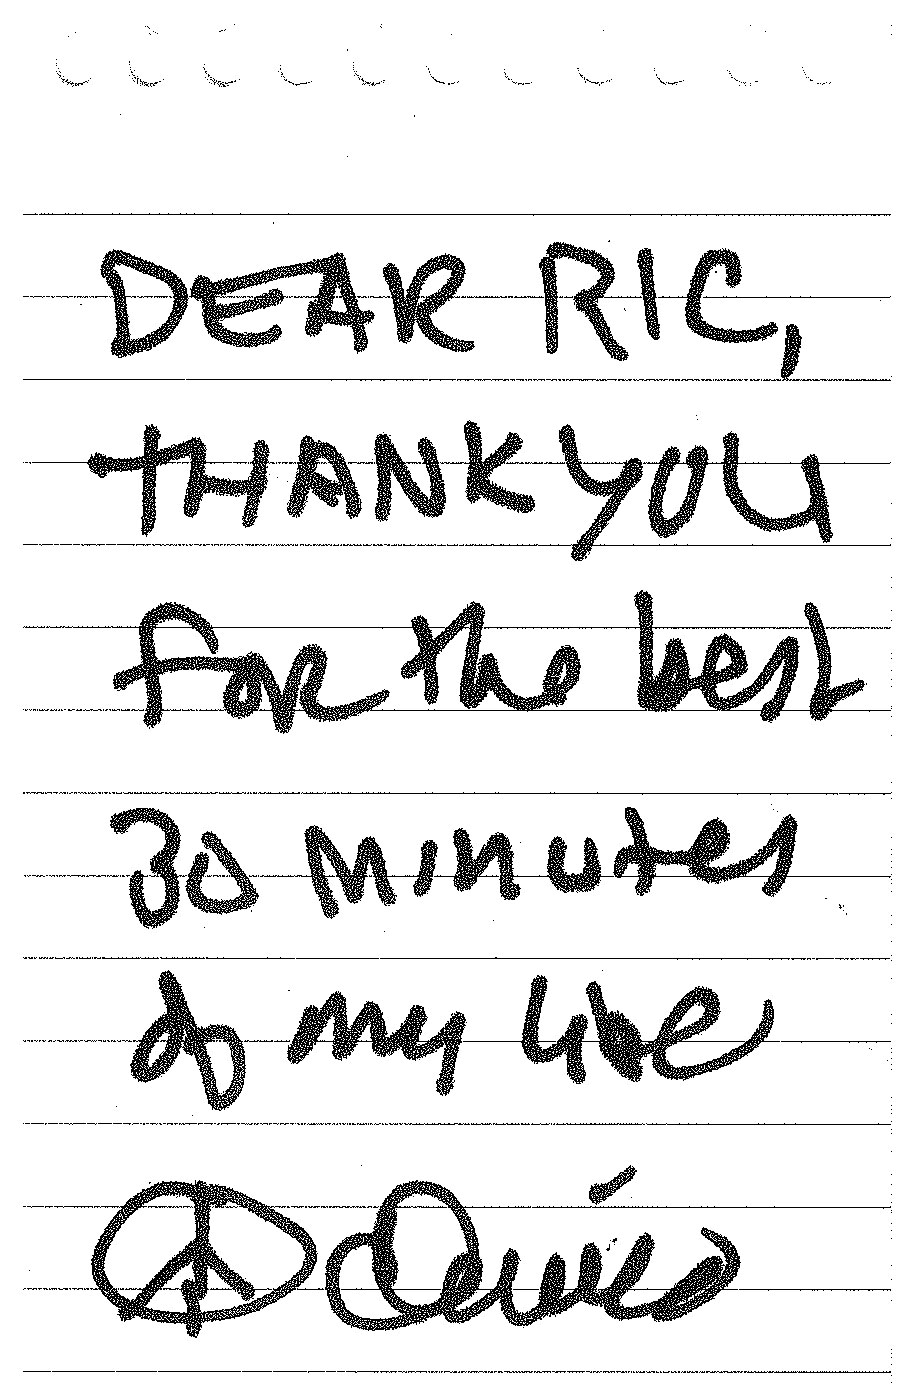 DEAR RIC,
THANK YOU
for the best
30 minutes
of my live